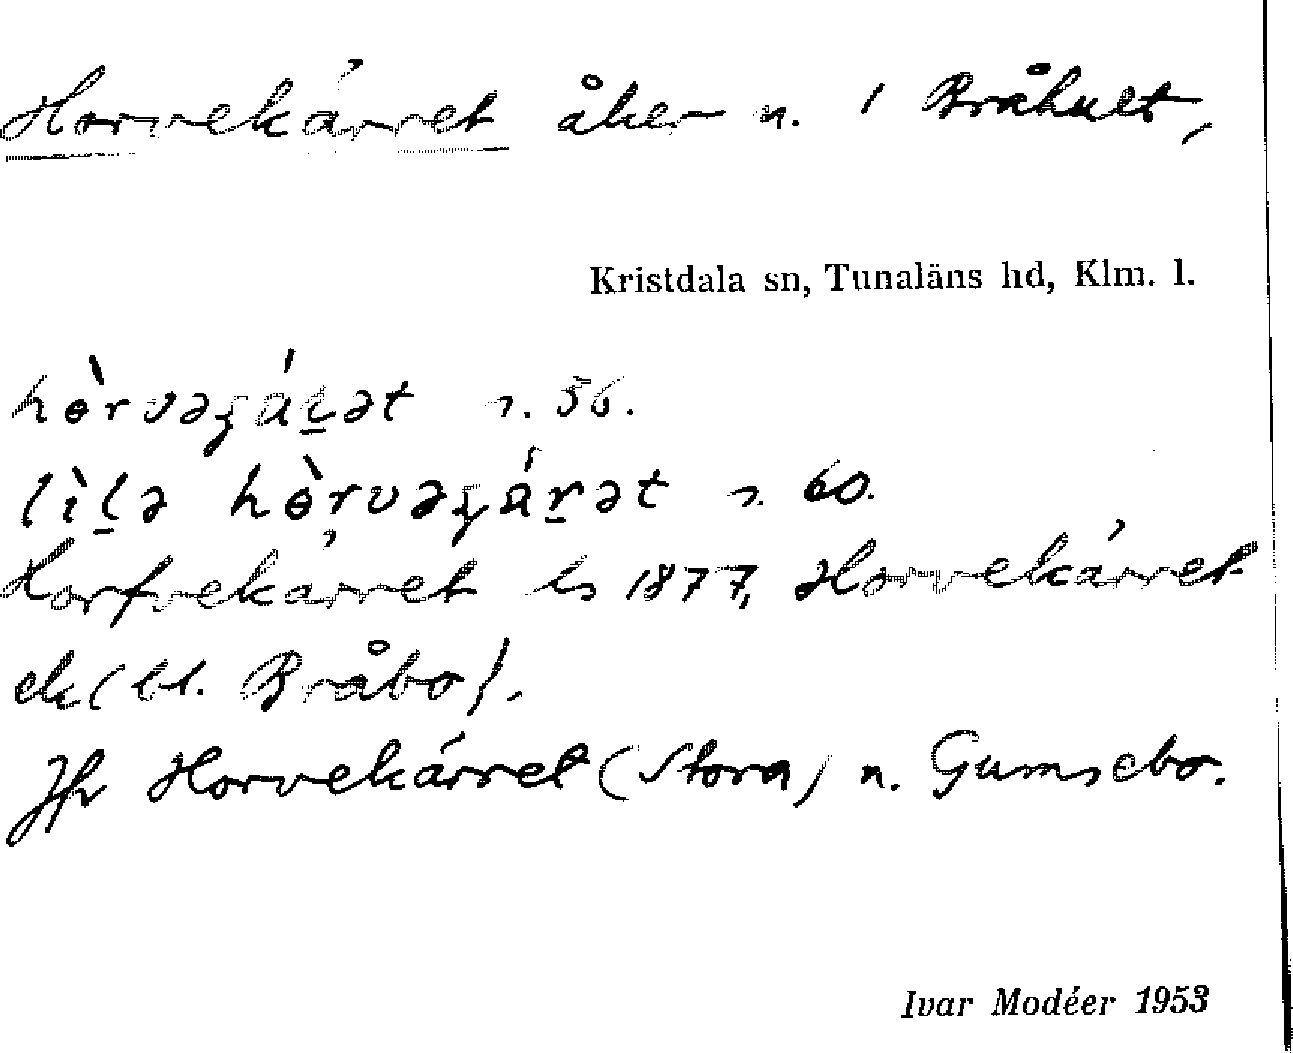 Horvekärret åker n. 1 Bråhult,
Kristdala sn, Tunaläns hd, Klm. l.
hɵ̀rvəʒáṟət n. 56.
lìḻə hɵ̀rvəʒáṟət n. 60.
Horfvekärret ls 1877, Horvekärret
ek (bl. Bråbo).
Jfr Horvekärret (Stora) n. Gumsebo.
Ivar Modéer 1953